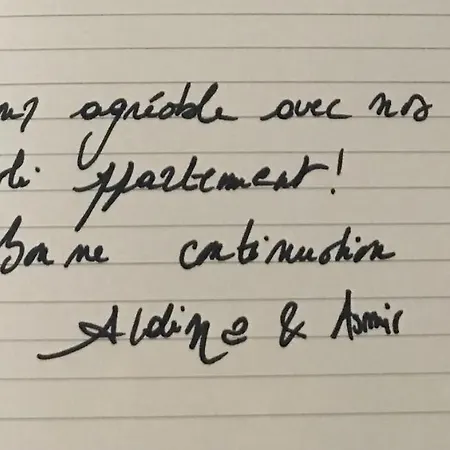 agréable avec nos
appartement!
Bonne continuation
Aldina & Asmir